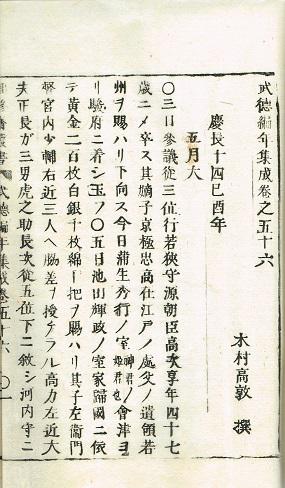 武德編年集成卷之五十六
木村高敦 撰
慶長十四己酉年
五月大
〇三日參議從三位行若狹守源朝臣高次享年四十七
歳ニメ卒ス其嫡子京極忠高在江戸ノ處父ノ遺領若
州ヲ賜ハリ下向ス今日蒲生秀行ノ室神君ノ姫君也會津ヨ
リ駿府ニ着シ玉ノ〇五日池田輝政ノ室家歸國ニ依
テ黄金二百枚白銀千枚綿一把ヲ賜ハリ其子左衞門
督宮内少輔右近三人ヘ腰差ヲ授ケラル高力左近大
夫正長が三男虎之助長次從五位下ニ敘シ河内守ニ
武德編年集成卷五十六 〇一